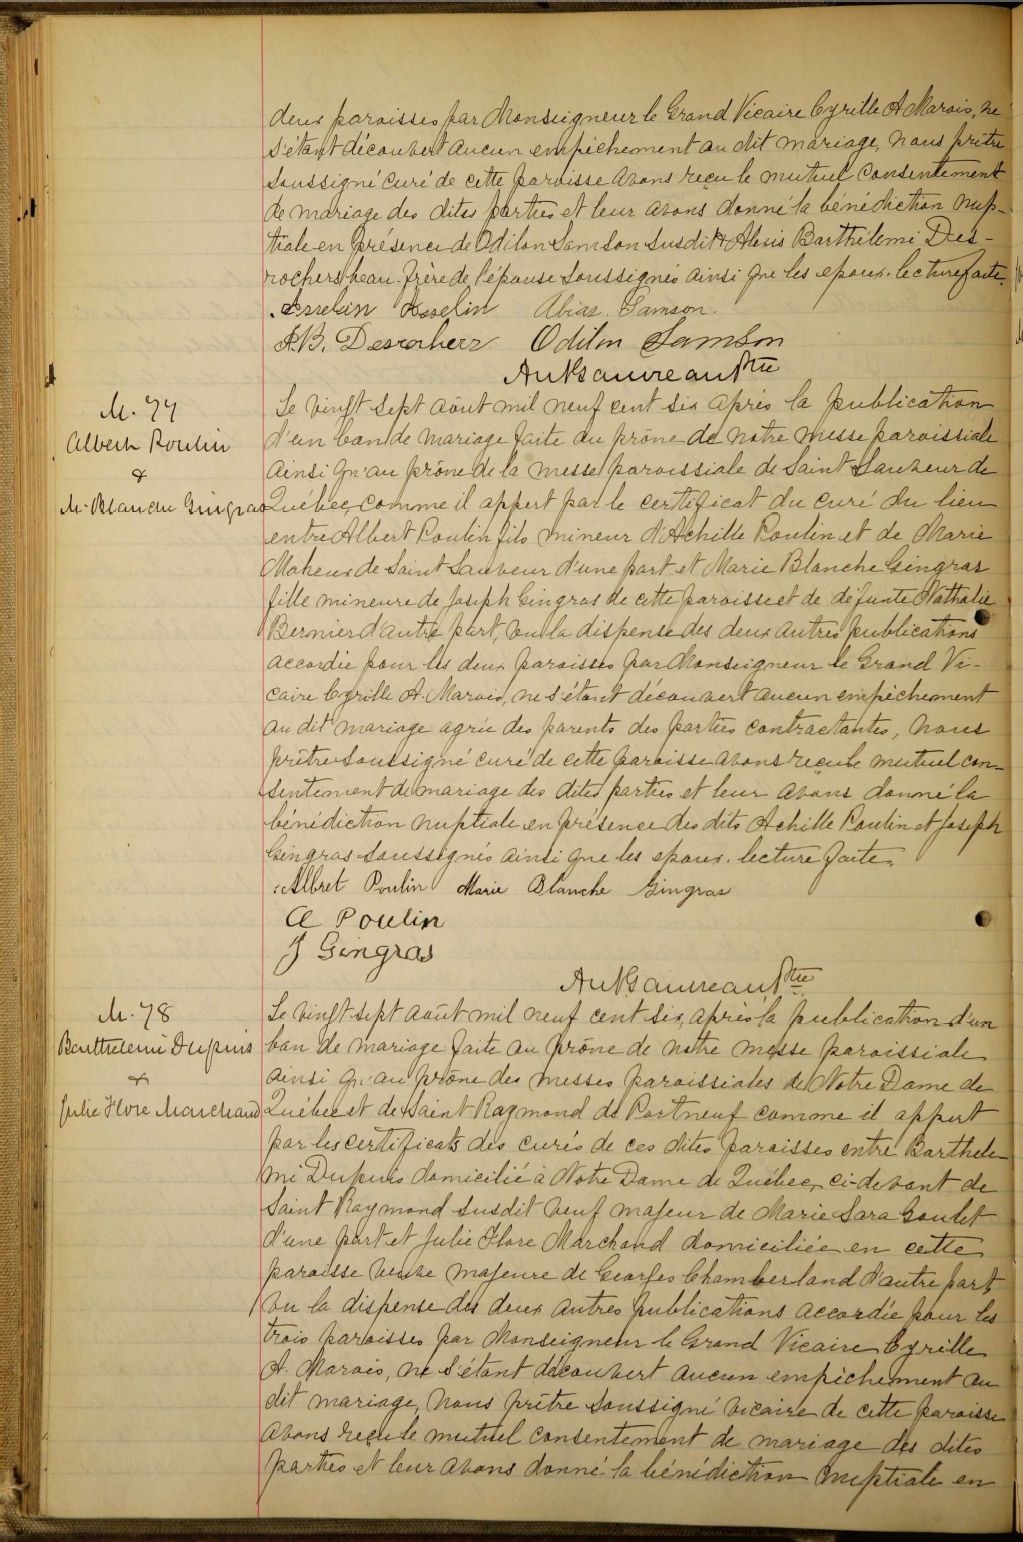 deux paroisses par Monseigneur le Grand Vicaire Cyrille A Marois, ne
s'étant découvert aucun empêchement au dit mariage, nous prêtre
soussigné curé de cette paroisse avons reçu le mutuel consentement
de mariage des dites parties et leur avons donné la bénédiction nup-
tiale en présence de Odilon Samson susdit & Alexis Barthélemi Des-
rochers beau-frère de l'épouse soussignés ainsi que les epoux. lecture faite.
Asselin Alias Samson.
A.B. Desrochers Odilon Samson
Ptre
M. 77
Albert Poulin
&
M. Blanche Gingras
Le vingt sept août mil neuf cent six après la publication
d'un ban de mariage faite au prône de notre messe paroissiale
ainsi qu'au prône de la messe paroissiale de Saint Sauveur de
Québec, comme il appert par le certificat du curé du lieu
entre Albert Poulin fils mineur d'Achille Poulin et de Marie
Maheux de Saint Sauveur d'une part et Marie Blanche Gingras
fille mineure de Joseph Gingras de cette paroisse et de défunte Nathalie
Bernier d'autre part, vu la dispense des deux autres publications
accordée pour les deux paroisses par Monseigneur le Grand Vi-
caire Cyrille A. Marois, ne s'étant découvert aucun empêchement
au dit mariage agrée des parents des parties contractantes, nous
prêtre soussigné curé de cette paroisse avons reçu le mutuel con-
sentement de mariage des dites parties et leur avons donné la
bénédiction nuptiale en présence des dits Achille Poulin et Joseph
Gingras soussignés ainsi que les epoux. lecture faite.
Albret Poulin Marie Blanche Gingras
A Poulin
J Gingras
Ptre
M. 78
Barthelemi Dupuis
&
Julie Flore Marchand
Le vingt sept août mil neuf cent six, après la publication d'un
ban de mariage faite au prône de notre messe paroissiale
ainsi qu'au prône des messes paroissiales de Notre Dame de
Québec et de Saint Raymond de Portneuf comme il appert
par les certificats des curés de ces dites paroisses entre Barthele-
mi Dupuis domicilié à Notre Dame de Québec, ci-devant de
Saint Raymond susdit veuf majeur de Marie Sara Goulet
d'une part et Julie Flore Marchand domiciliée en cette
paroisse veuve majeure de Georges Chamberland d'autre part,
vu la dispense des deux autres publications accordée pour les
trois paroisses par Monseigneur le Grand Vicaire Cyrille
A. Marois, ne s'étant découvert aucun empêchement au
dit mariage, nous prêtre soussigné vicaire de cette paroisse
avons reçu le mutuel consentement de mariage des dites
parties et leur avons donné la bénédiction nuptiale en